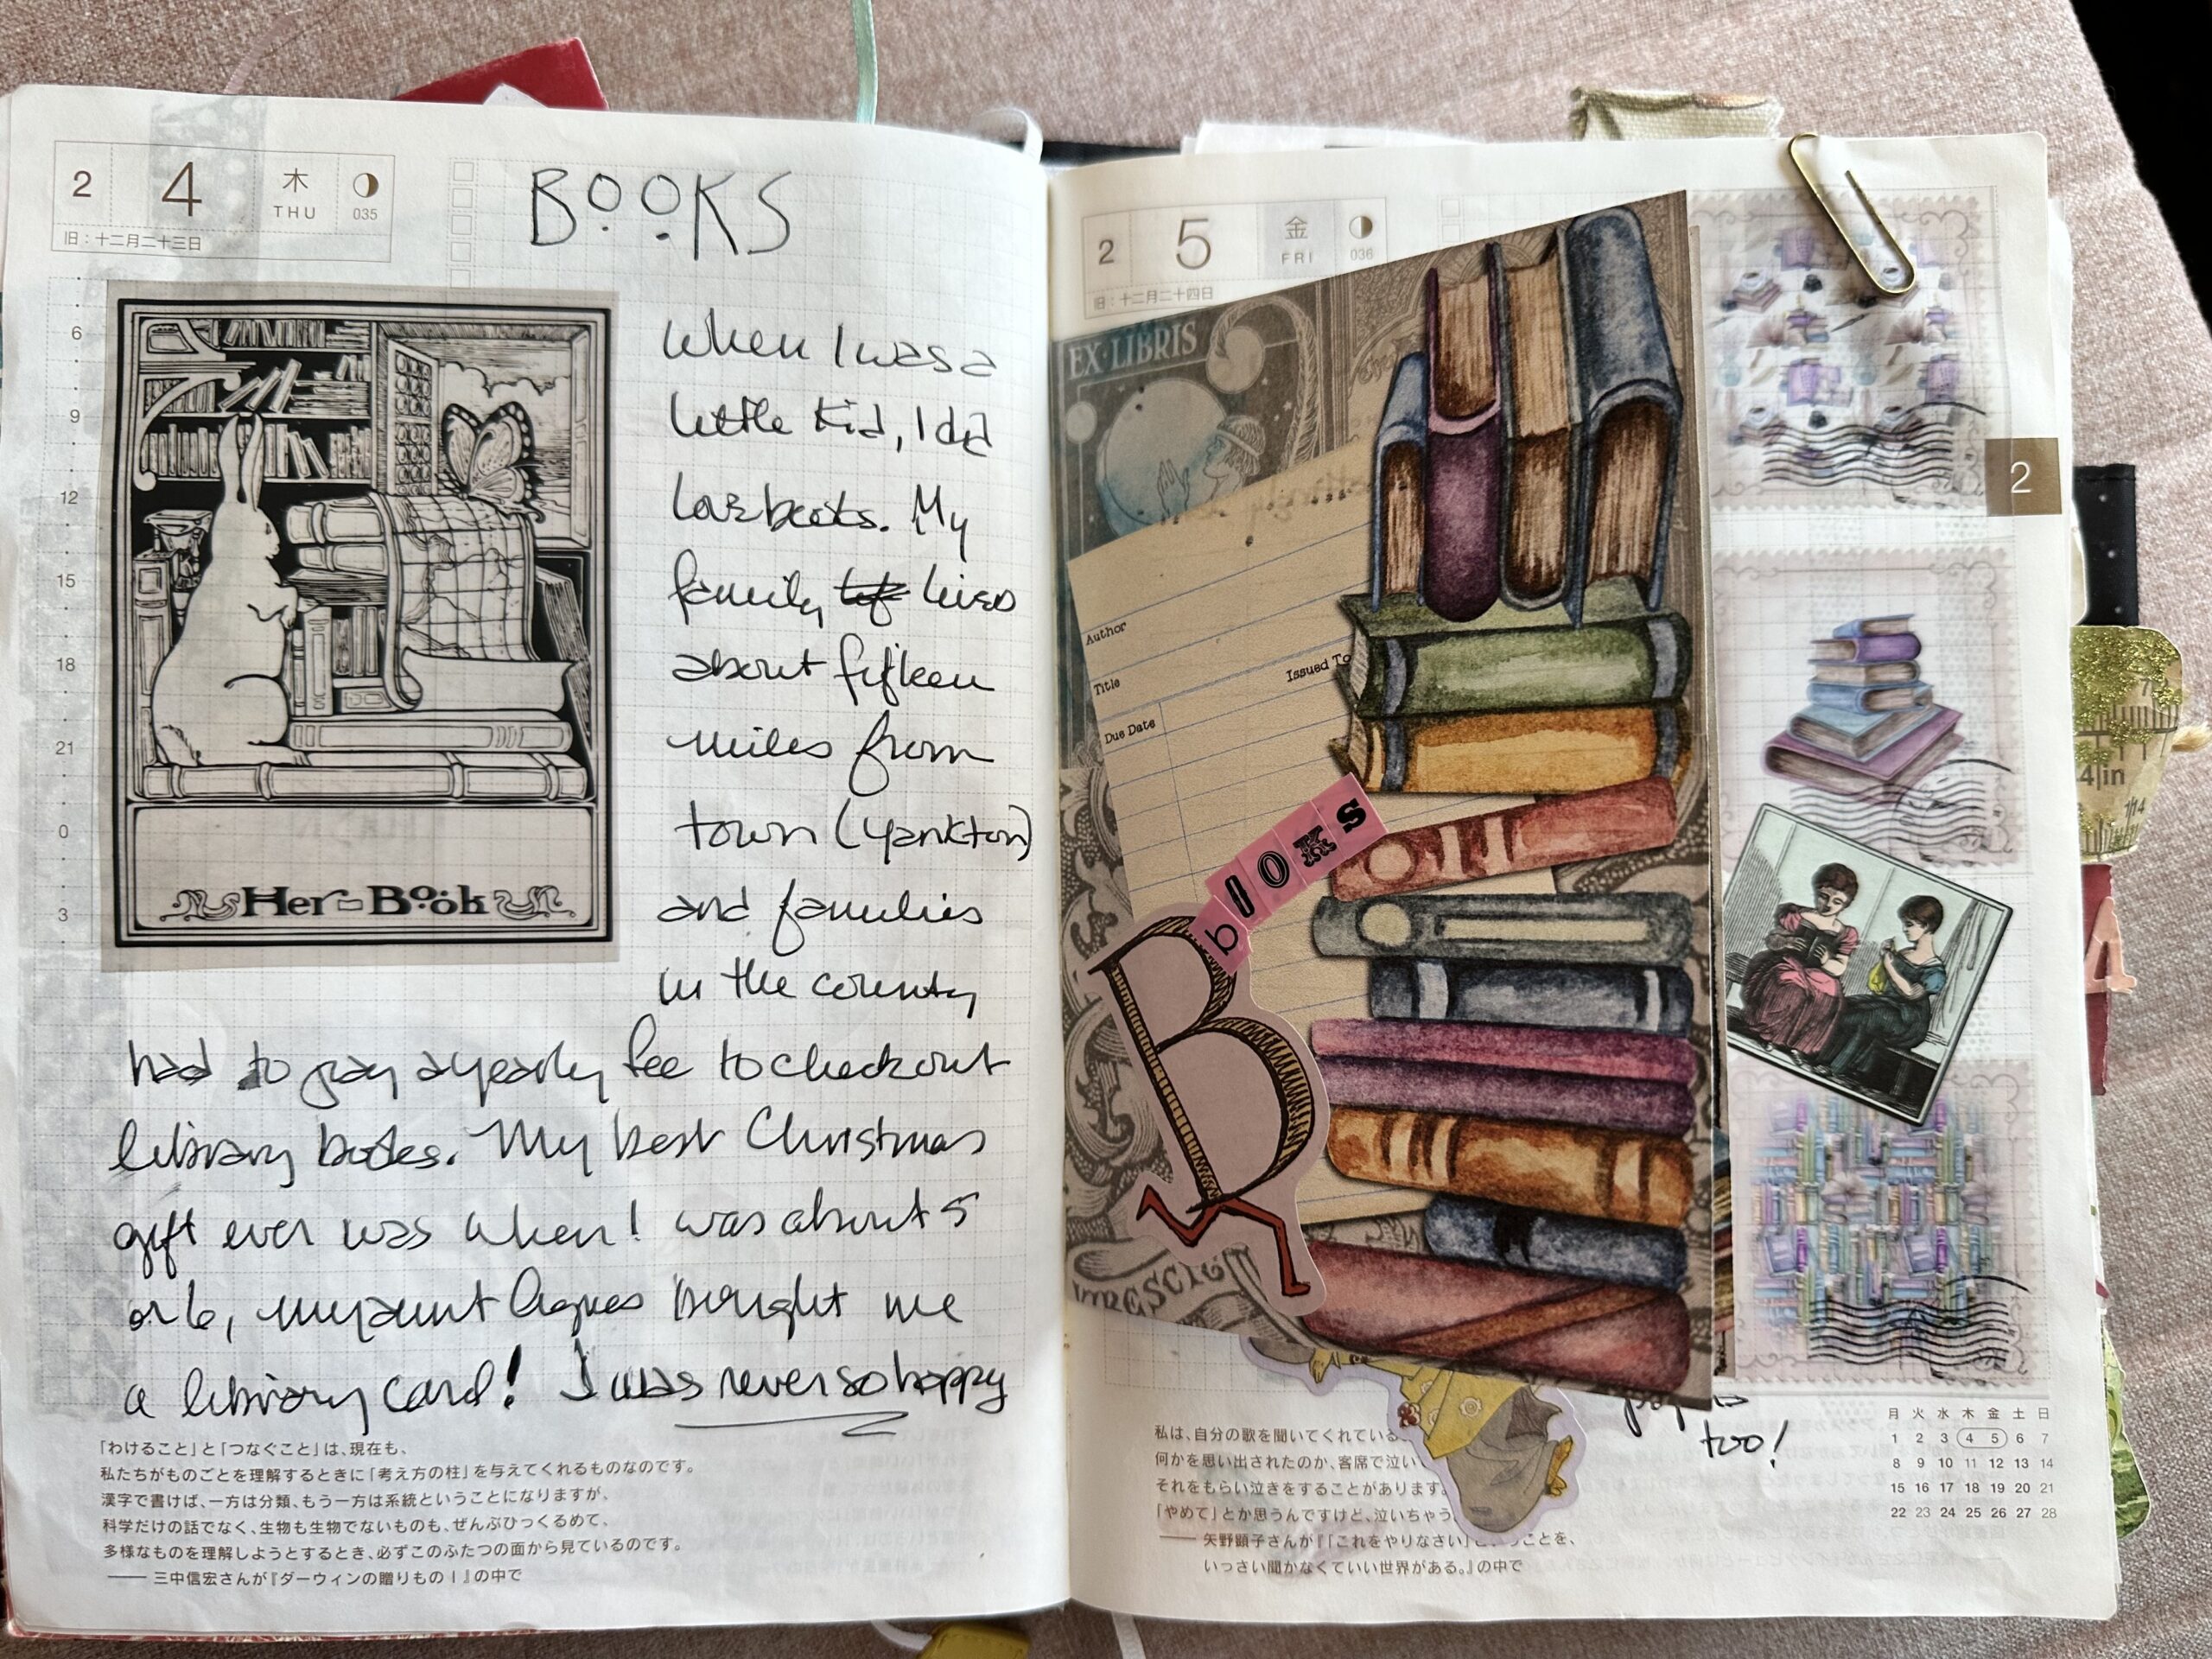 2 4 木 THU 035
旧：十二月二十三日
BOOKS
6
9
12
15
18
21
0
3
Her Book
When I was a
little kid, I did
love books. My
family lived
about fifteen
miles from
town (Yankton)
and families
in the county
had to pay a yearly fee to checkout
library books. My best Christmas
gift ever was when I was about 5
or 6, my aunt Agnes bought me
a library card! I was never so happy
「わけること」と「つなぐこと」は、現在も、
私たちがものごとを理解するときに「考え方の柱」を与えてくれるものなのです。
漢字で書けば、一方は分類、もう一方は系統ということになりますが、
科学だけの話でなく、生物も生物でないものも、ぜんぶひっくるめて、
多様なものを理解しようとするとき、必ずこのふたつの面から見ているのです。
―― 三中信宏さんが『ダーウィンの贈りものⅠ』の中で
2 5 金 FRI 036
旧：十二月二十四日
EX·LIBRIS
Author
Title
Issued To
Due Date
bOOKs
B
2
4 in
too!
私は、自分の歌を聞いてくれている
何かを思い出されたのか、客席で泣い
それをもらい泣きをすることがあります。
「やめて」とか思うんですけど、泣いちゃう
―― 矢野顕子さんが『「これをやりなさい」と ことを、
いっさい聞かなくていい世界がある。』の中で
月 火 水 木 金 土 日
1 2 3 4 5 6 7
8 9 10 11 12 13 14
15 16 17 18 19 20 21
22 23 24 25 26 27 28